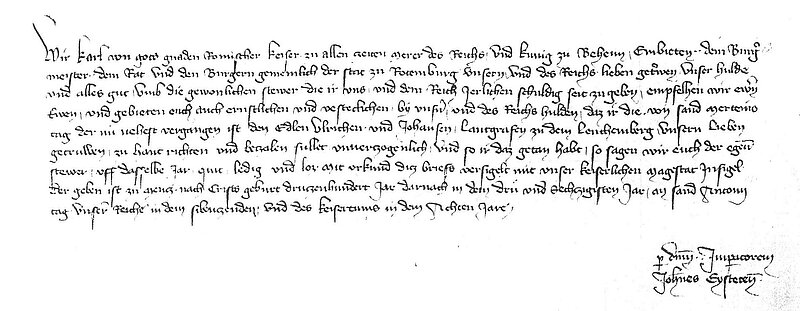 Wir Karl von gots gnaden Romischer keiser zu allen zeiten merer des Reichs und kunig zu Beheim Embieten dem Burg͛
meister dem Rat und den Burgern gemeinlich der stat zu Rotemburg unsern und des Reichs lieben getrewen unser hulde
und alles gut Umb die gewonlichen stewer die ir uns und dem Reich Jerlichen schuldig seit zu geben empfelhen wir
Ewern und gebieten euch auch ernstlichen und vesteclichen by unsern und des Reichs hulden daz ir die von sand mertens
tag der nu nehest vergangen ist den Edlen Ulrichen und Johansen Lantgrafen zu dem Leuchemberg unsern lieben
getruwen zu hant richten und betzalen sullet unverzogenlich und so ir daz getan habt so sagen wir euch der egen
stewer uff dasselbe Jar quit ledig und los Mit urkund ditz briefs versigelt mit unser keiserlichen Magestat Insigel
Der geben ist zu Mentz nach Cristo geburt druzenhundert Jar darnach in dem drii und Sechzigisten Jar an sand
tag unser Reiche in dem sibenzenden und des keisertums in dem Achten Jare
p dnm Imperatorem
Johnes Eysteten